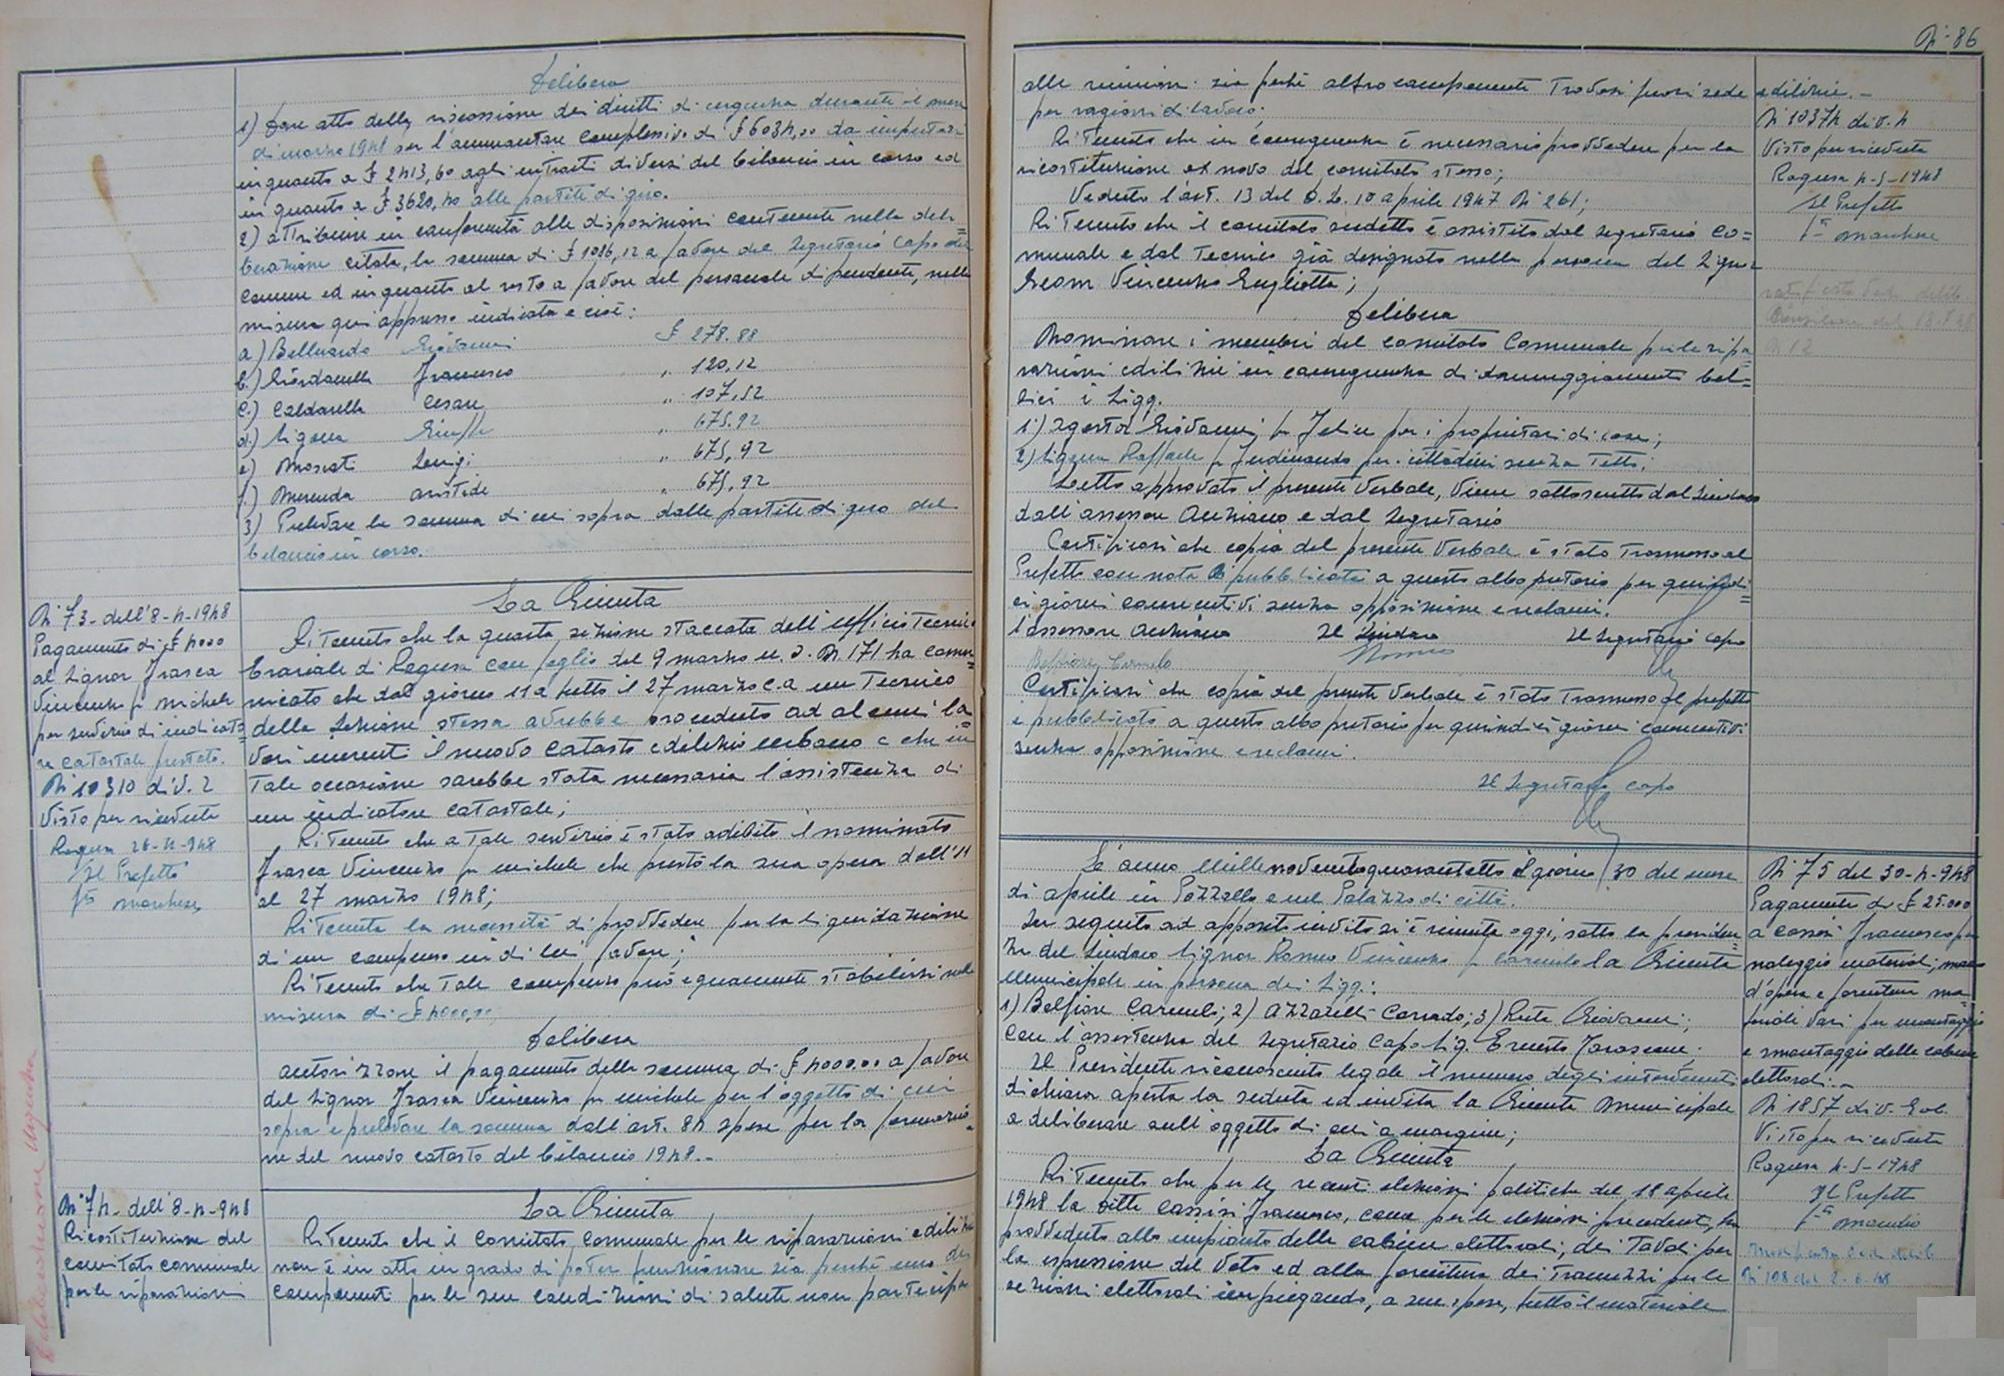 Delibera
1) Dare atto della riscossione dei diritti di urgenza durante il mese
di marzo 1948 per l'ammontare complessivo di £ 6034,00 da imputarsi
in quanto a £ 2413,60 agli introiti diversi del bilancio in corso ed
in quanto a £ 3620,40 alle partite di giro.
2) attribuire in conformità alle disposizioni contenute nella deli=
berazione citata, la somma di £ 1086,12 a favore del Segretario Capo del
comune ed in quanto al resto a favore del personale dipendente, nella
misura qui appresso indicata e cioè:
a) Belluardo Giovanni £ 278.88
b) Giordanella Francesco " 120,12
c) Caldarella Cesare " 107,52
d) Ligama " 675.92
e) Moscati Luigi " 675,92
f) Merenda Aristide " 675,92
3) Prelevare la somma di cui sopra dalle partite di giro del
bilancio in corso.
N. 73 - dell'8-4-1948
Pagamento di £ 4000
al Signor Frasca
Vincenzo fu Michele
per servizio di indicato=
re catastale prestato.
N. 10310 div. 2
Visto per ricevuta
Ragusa 26-4-948
Il Prefetto
fto Marchese
La Giunta
Ritenuto che la quarta sezione staccata dell'ufficio tecnico
Erariale di Ragusa con foglio del 9 marzo u.s. N. 171 ha comu=
nicato che dal giorno 11 a tutto il 27 marzo c.a un Tecnico
della Sezione stessa avrebbe proceduto ad alcuni la=
vori inerenti il nuovo catasto edilizio urbano e che in
tale occasione sarebbe stata necessaria l'assistenza di
un indicatore catastale;
Ritenuto che a tale servizio è stato adibito il nominato
Frasca Vincenzo fu Michele che prestò la sua opera dall'11
al 27 marzo 1948;
Ritenuta la necessità di provvedere per la liquidazione
di un compenso in di lui favore;
Ritenuto che tale compenso può equamente stabilirsi nella
misura di £ 4000,00
Delibera
autorizzare il pagamento della somma di £ 4000.00 a favore
del Signor Frasca Vincenzo fu Michele per l'oggetto di cui
sopra e prelevare la somma dall'art. 84 spese per la formazio=
ne del nuovo catasto del bilancio 1948.-
N. 74 - dell'8-4-948
Ricostituzione del
comitato comunale
per le riparazioni
La Giunta
Ritenuto che il Comitato Comunale per le riparazioni edilizie
non è in atto in grado di poter funzionare sia perché uno dei
componenti per le sue condizioni di salute non partecipa
Deliberazione Urgenza
N. 86
alle riunioni sia perché altro componente trovasi fuori sede
per ragioni di lavoro;
Ritenuto che in conseguenza è necessario provvedere per la
ricostituzione ex novo del comitato stesso;
Veduto l'art. 13 del D.L. 10 aprile 1947 N. 261;
Ritenuto che il comitato suddetto è assistito dal Segretario Co=
munale e dal Tecnico già designato nella persona del Signor
Geom Vincenzo Gugliotta;
Delibera
Nominare i membri del comitato Comunale per le ripa=
razioni edilizie in conseguenza di danneggiamenti bel=
lici i Sigg.
1) Giovanni fu Felice per i proprietari di case;
2) Ligama Raffaele fu Ferdinando per i cittadini senza tetto;
Letto approvato il presente Verbale, viene sottoscritto dal Sindaco
dall'assessore Anziano e dal Segretario
Certificasi che copia del presente Verbale è stato trasmesso al
Prefetto con nota e pubblicata a questo albo pretorio per quindi=
ci giorni consecutivi senza opposizione e reclami.
l'assessore Anziano Il Sindaco Il Segretario Capo
Belfiore Carmelo Romeo
Certificasi che copia del presente Verbale è stato trasmesso al prefetto
e pubblicato a questo albo pretorio per quindici giorni consecutivi
senza opposizione e reclami.
Il Segretario Capo
edilizie.-
N. 10374 div. 4
Visto per ricevuta
Ragusa 4-5-1948
Il Prefetto
fto Marchese
L'anno millenovecentoquarantotto il giorno 30 del mese
di aprile in Pozzallo e nel Palazzo di città.
In seguito ad apposito invito si è riunita oggi, sotto la presiden=
za del Sindaco Signor Romeo Vincenzo fu Carmelo la Giunta
Municipale in persona dei Sigg.:
1) Belfiore Carmelo; 2) Azzarelli Corrado; 3) Ruta Giovanni;
Con l'assistenza del Segretario Capo Sig. Ernesto
Il Presidente riconosciuto legale il numero degli intervenuti
dichiara aperta la seduta ed invita la Giunta Municipale
a deliberare sull'oggetto di cui a margine;
La Giunta
Ritenuto che per le recenti elezioni politiche del 18 aprile
1948 la ditta Cassisi Francesco, come per le elezioni precedenti, ha
provveduto allo impianto delle cabine elettorali, dei tavoli per
la espressione del Voto ed alla fornitura dei tramezzi per le
sezioni elettorali impiegando, a sue spese, tutto il materiale
N. 75 del 30-4-948
Pagamento di £ 25.000
a Cassisi Francesco per
noleggio materiali, mano
d'opera e forniture ma=
teriali vari per montaggio
e smontaggio delle cabine
elettorali.-
N. 1857 div. Gab.
Visto per ricevuta
Ragusa 4-5-1948
Il Prefetto